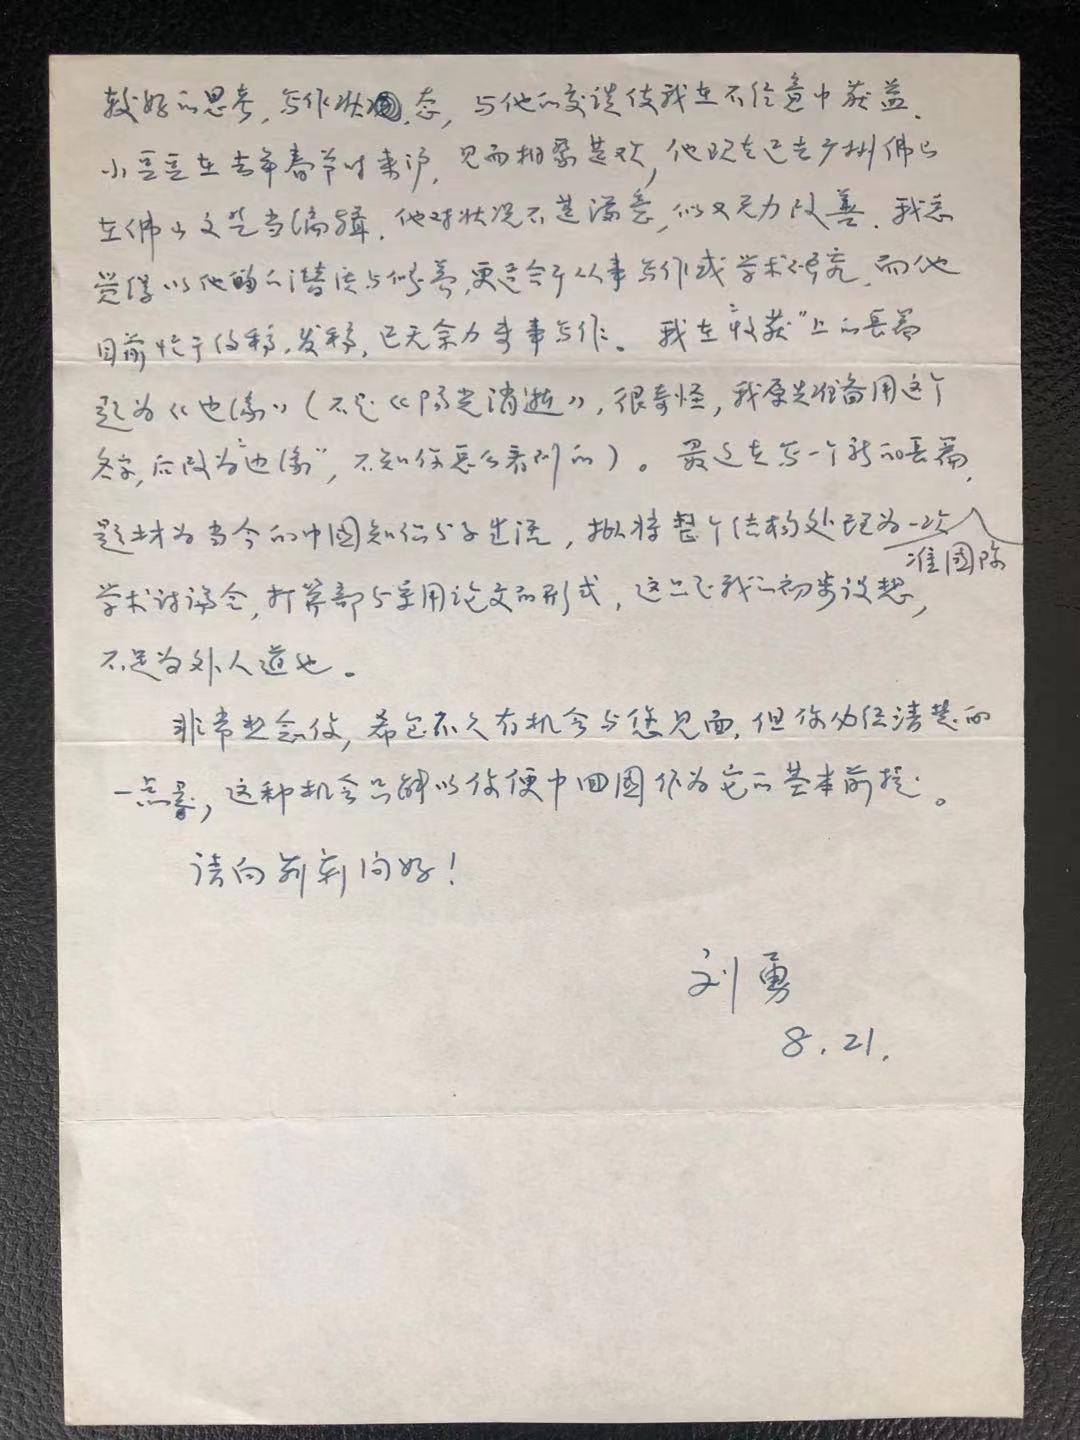 较好的思考,写作状态,与他的交谈使我在不经意中获益.
小豆豆在去年春节时来沪,见面相聚甚欢,他现在已去广州佛山
在佛山文艺当编辑.他对状况不甚满意,似又无力改善.我总
觉得以他的潜质与修养,更适合于从事写作或学术研究,而他
目前忙于约稿、发稿,已无余力专事写作。我在"收获"上的长篇
题为《边缘》(不是《阳光消逝》,很奇怪,我原先准备用这个
名字,后改为"边缘",不知你怎么看到的)。最近在写一个新的长篇,
题材为当今的中国知识分子生活,拟将整个结构处理为一次准国际
学术讨论会,打算部分采用论文的形式,这只是我的初步设想,
不足为外人道也。
非常想念你,希望不久有机会与您见面,但你为任清楚的
一点是,这种机会只能以你便中回国作为它的基本前提。
请向莉莉问好!
刘勇
8.21.